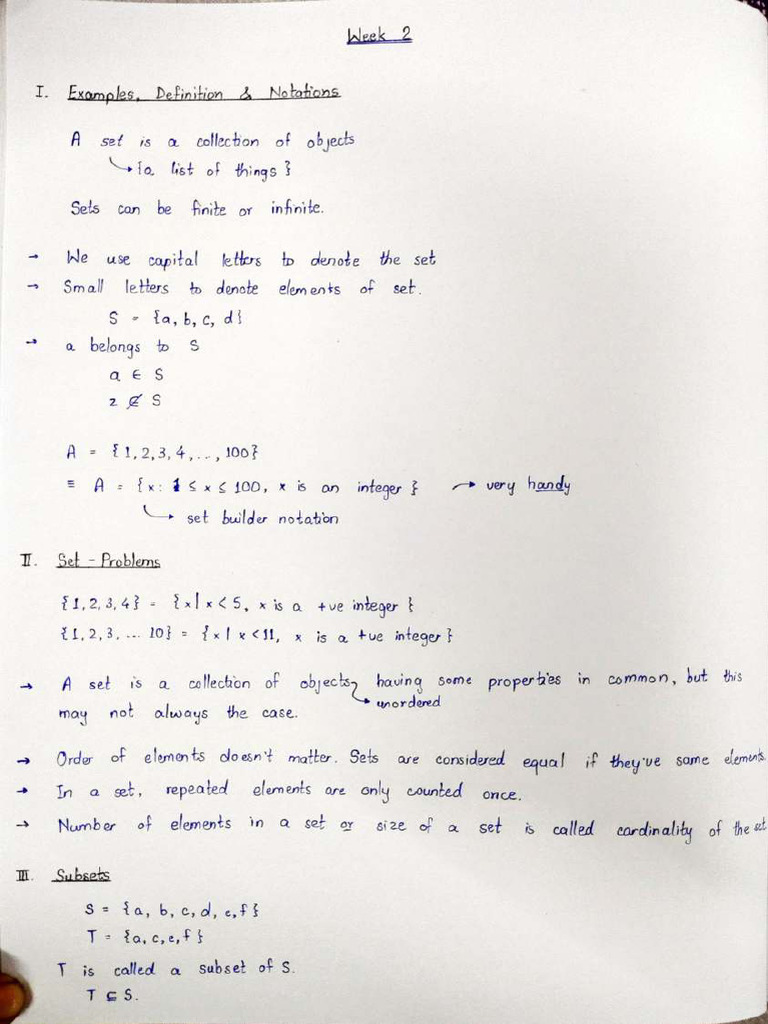 Week 2
I. Examples, Definition & Notations
A set is a collection of objects
↳ {a list of things}
Sets can be finite or infinite.
→ We use capital letters to denote the set
→ Small letters to denote elements of set.
S = {a, b, c, d}
→ a belongs to S
a ∈ S
z ∉ S
A = {1, 2, 3, 4, ..., 100}
≡ A = {x: 1 ≤ x ≤ 100, x is an integer} → very handy
↳ set builder notation
II. Set - Problems
{1, 2, 3, 4} = {x | x < 5, x is a +ve integer}
{1, 2, 3, ... 10} = {x | x < 11, x is a +ve integer}
→ A set is a collection of objects, having some properties in common, but this
↳ unordered
may not always the case.
→ Order of elements doesn't matter. Sets are considered equal if they've same elements.
→ In a set, repeated elements are only counted once.
→ Number of elements in a set or size of a set is called cardinality of the set
III. Subsets
S = {a, b, c, d, e, f}
T = {a, c, e, f}
T is called a subset of S.
T ⊆ S.